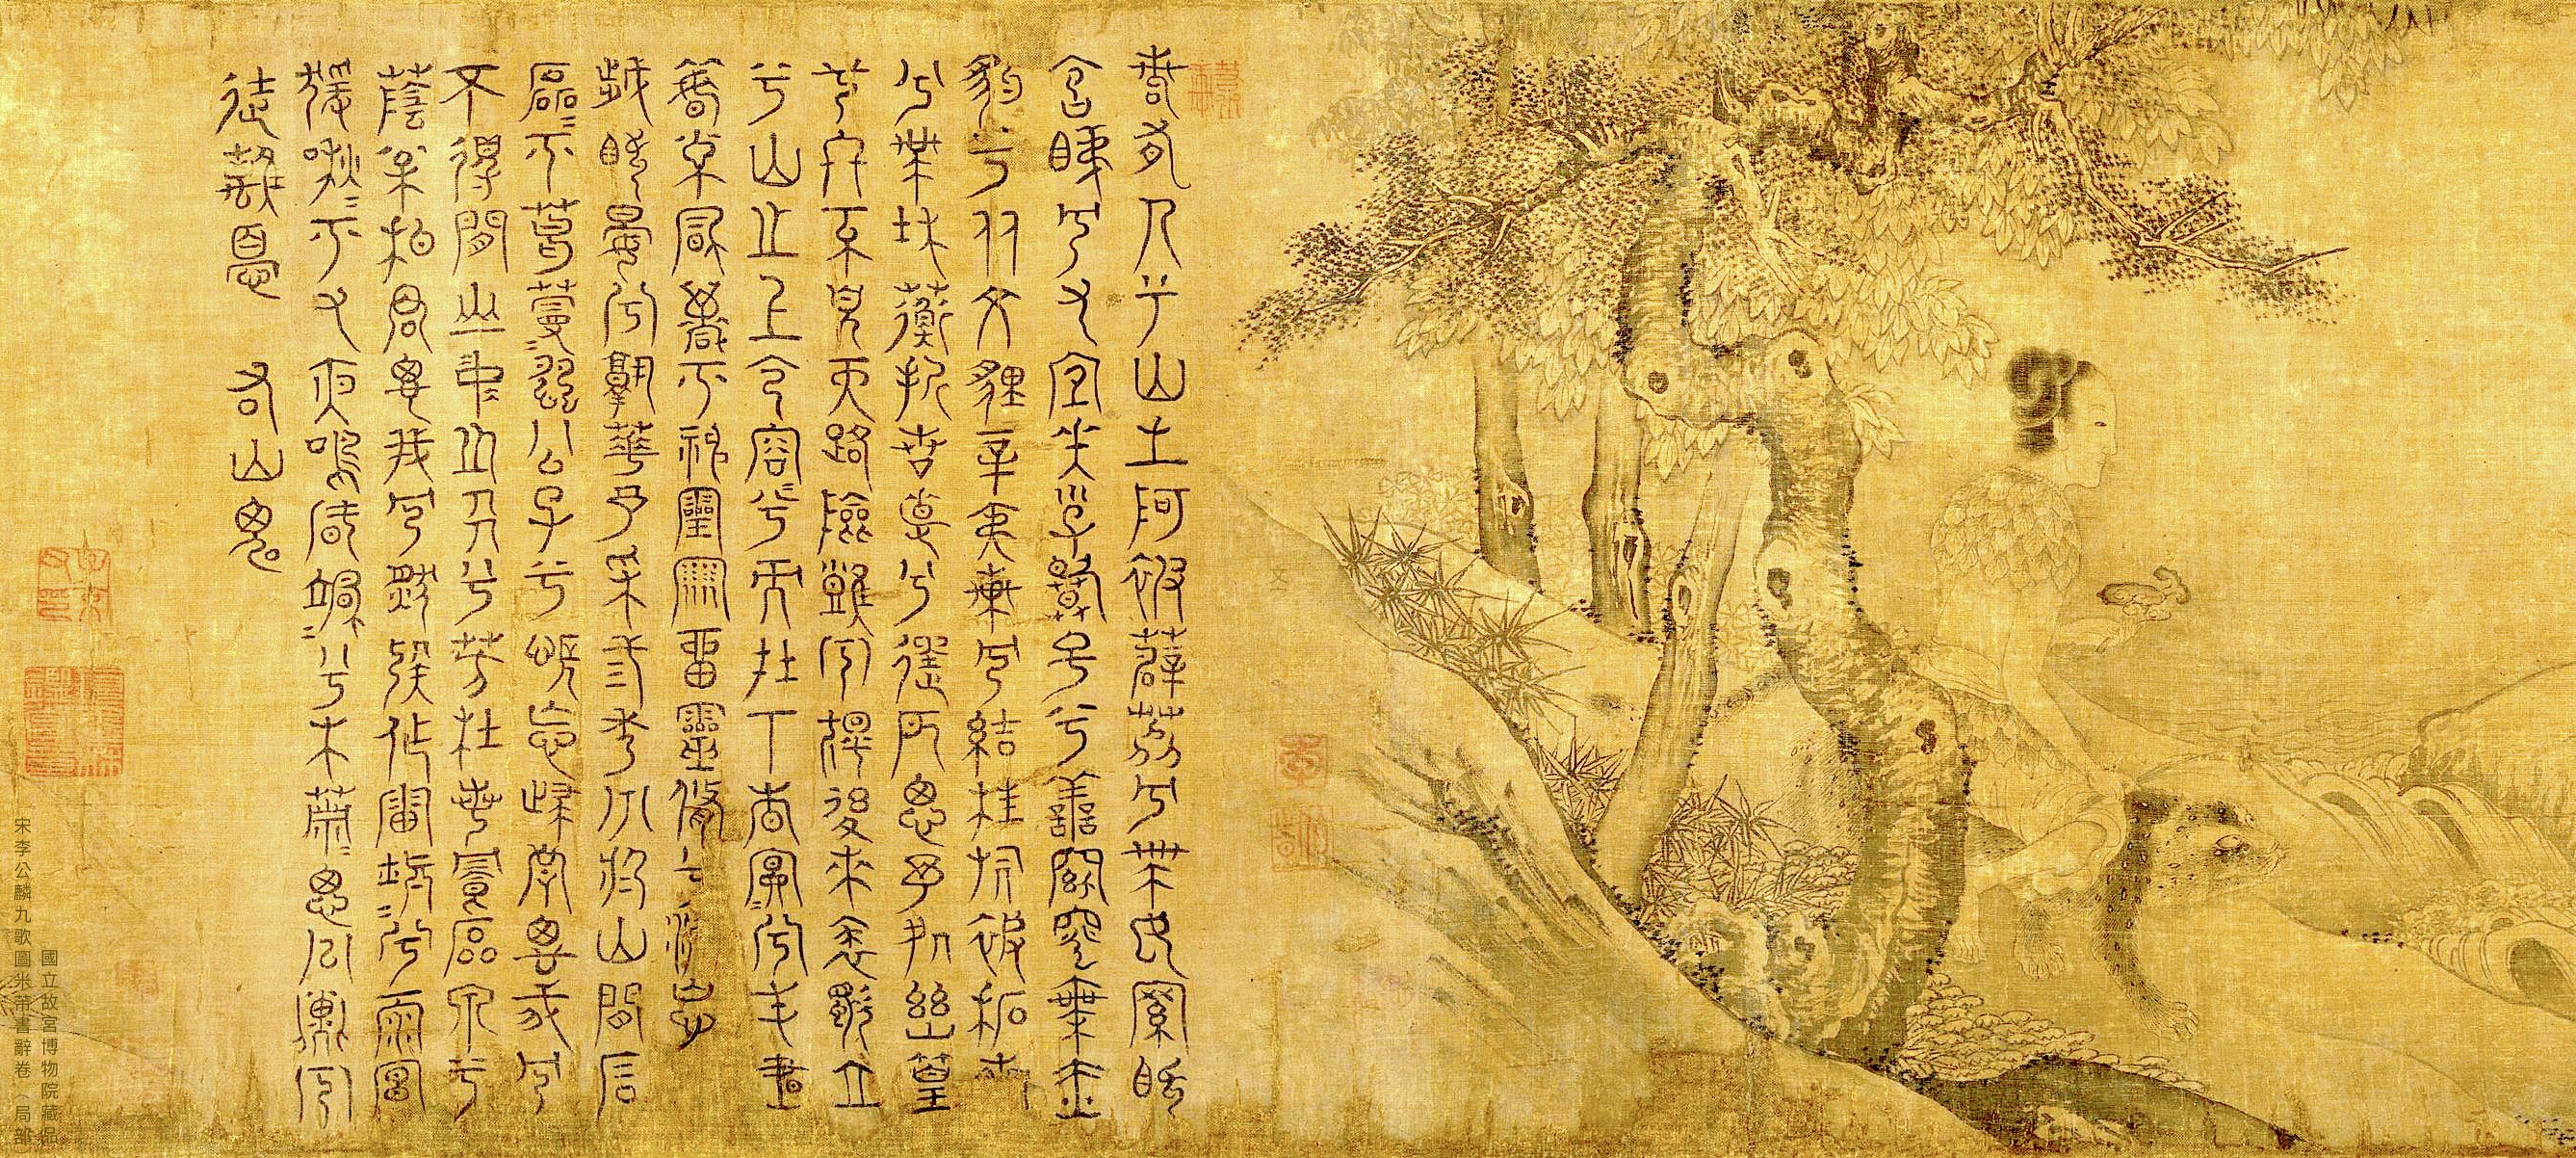 若有人兮山之阿被薜荔兮帶女蘿既
含睇兮又宜笑子慕予兮善窈窕乘赤
豹兮從文貍辛夷車兮結桂旗被石
兮帶杜衡折芳馨兮遺所思余處幽篁
兮終不見天路險難兮獨後來表獨立
兮山之上雲容容兮而在下杳冥冥兮羌晝
晦東風飄兮神靈雨留靈脩兮憺忘
歲既晏兮孰華予采三秀兮於山間石
磊磊兮葛蔓蔓怨公子兮悵忘歸君思我兮
不得間山中人兮芳杜若飲石泉兮
蔭松柏君思我兮然疑作雷填填兮雨冥冥
猨啾啾兮又夜鳴風颯颯兮木蕭蕭思公子兮
徒離憂 右山鬼
宋李公麟九歌圖米芾書辭卷(局部)
國立故宮博物院藏品